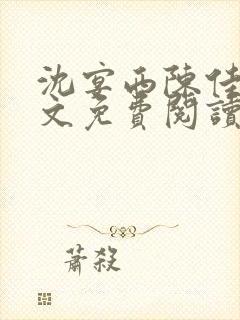 沈宴西陳佳
文免費閱讀
蕭殺